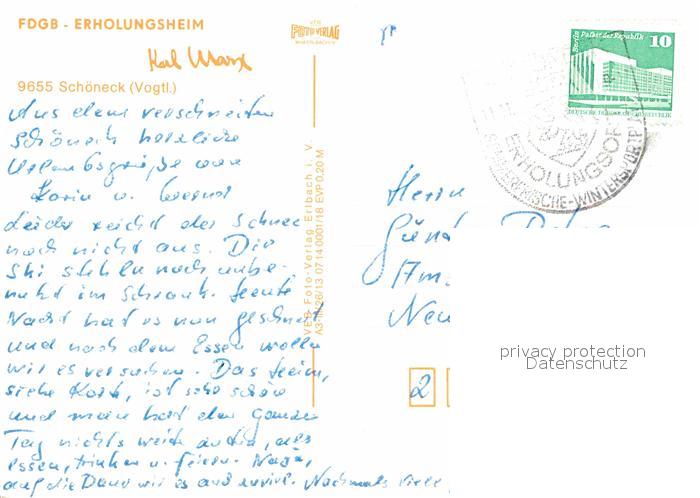 FDGB - ERHOLUNGSHEIM
Karl Marx
9655 Schöneck (Vogtl.)
VEB
FOTO-VERLAG
Aus dem verschneiten
Schöneck herzliche
Urlaubsgrüße von
Karin u. Bernd
Leider reicht der Schnee
noch nicht aus. Die
Ski stehen noch unbe-
nutzt im Schrank. Heute
Nacht hat es nun geschneit
und nach dem Essen wollen
wir es versuchen. Das Heim,
siehe Karte, ist sehr schön
und man hat den ganzen
Tag nichts weiter zu tun, als
essen, trinken u. feiern. Naja,
auf die Dauer wird es auch zuviel. Nochmals viele
VEB Foto-Verlag Erlbach i. V.
A3-III/26/13 07 14 0001/18 EVP 0,20 M
Berlin Palast der Republik
10
DEUTSCHE DEMOKRATISCHE REPUBLIK
ERHOLUNGSORT
WINTERSPORTPL
Herrn
Am
Neu
2
privacy protection
Datenschutz